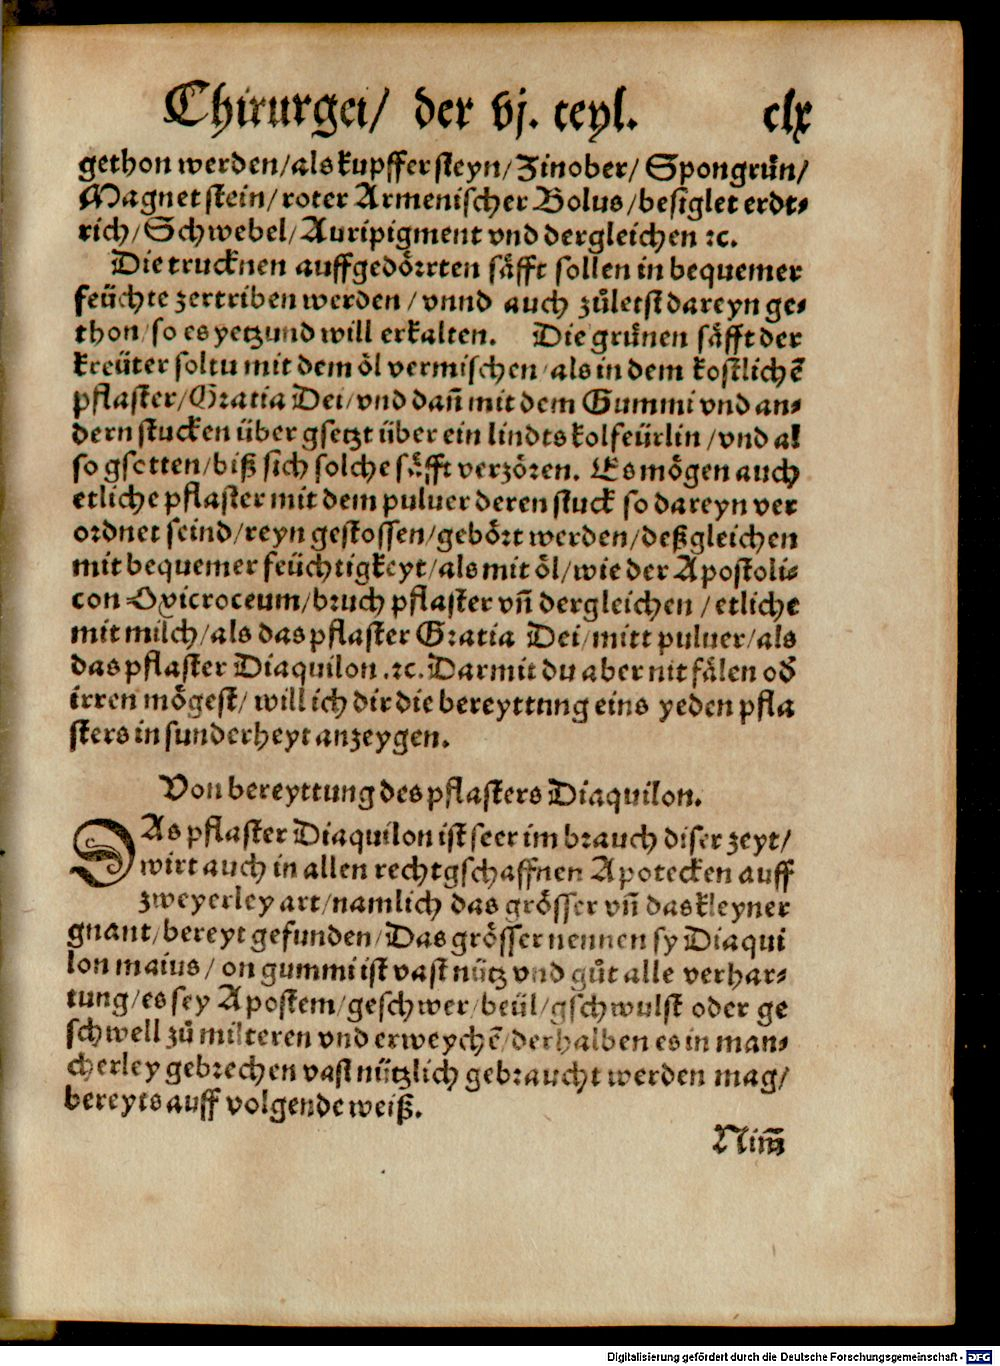 Chirurgei/ der vj. teyl. clx
gethon werden/als kupffersteyn/Zinober/ Spongruͤn/
Magnet stein/roter Armenischer Bolus/besiglet erdt⸗
rich/Schwebel/Auripigment vnd dergleichen ꝛc.
Die trucknen auffgedoͤrrten saͤfft sollen in bequemer
feüchte zertriben werden/vnnd auch zuͦletst dareyn ge⸗
thon/so es yetzund will erkalten. Die gruͤnen saͤfft der
kreüter soltu mit dem oͤl vermischen/als in dem kostlichẽ
pflaster/Gratia Dei/vnd dañ mit dem Gummi vnd an⸗
dern stucken über gsetzt über ein lindts kolfeürlin/vnd al
so gsotten/biß sich solche saͤfft verzoͤren. Es moͤgen auch
etliche pflaster mit dem puluer deren stuck so dareyn ver
ordnet seind/reyn gestossen/geboͤrt werden/deßgleichen
mit bequemer feüchtigkeyt/als mit oͤl/wie der Apostoli⸗
con Oxicroceum/bruch pflaster vñ dergleichen/etliche
mit milch/als das pflaster Gratia Dei/mitt puluer/als
das pflaster Diaquilon.ꝛc. Darmit du aber nit faͤlen od̕
irren moͤgest/will ich dir die bereyttnng eins yeden pfla
sters in sunderheyt anzeygen.
Von bereyttung des pflasters Diaquilon.
DAs pflaster Diaquilon ist seer im brauch diser zeyt/
wirt auch in allen rechtgschaffnen Apotecken auff
zweyerley art/namlich das groͤsser vñ das kleyner
gnant/bereyt gefunden/Das groͤsser nennen sy Diaqui
lon maius/on gummi ist vast nuͤtz vnd guͦt alle verhar⸗
tung/es sey Apostem/geschwer/beül/gschwulst oder ge
schwell zuͦ milteren vnd erweychẽ/derhalben es in man⸗
cherley gebrechen vast nuͤtzlich gebraucht werden mag/
bereyts auff volgende weiß.
Nim̃
Digitalisierung gefördert durch die Deutsche Forschungsgemeinschaft - DFG